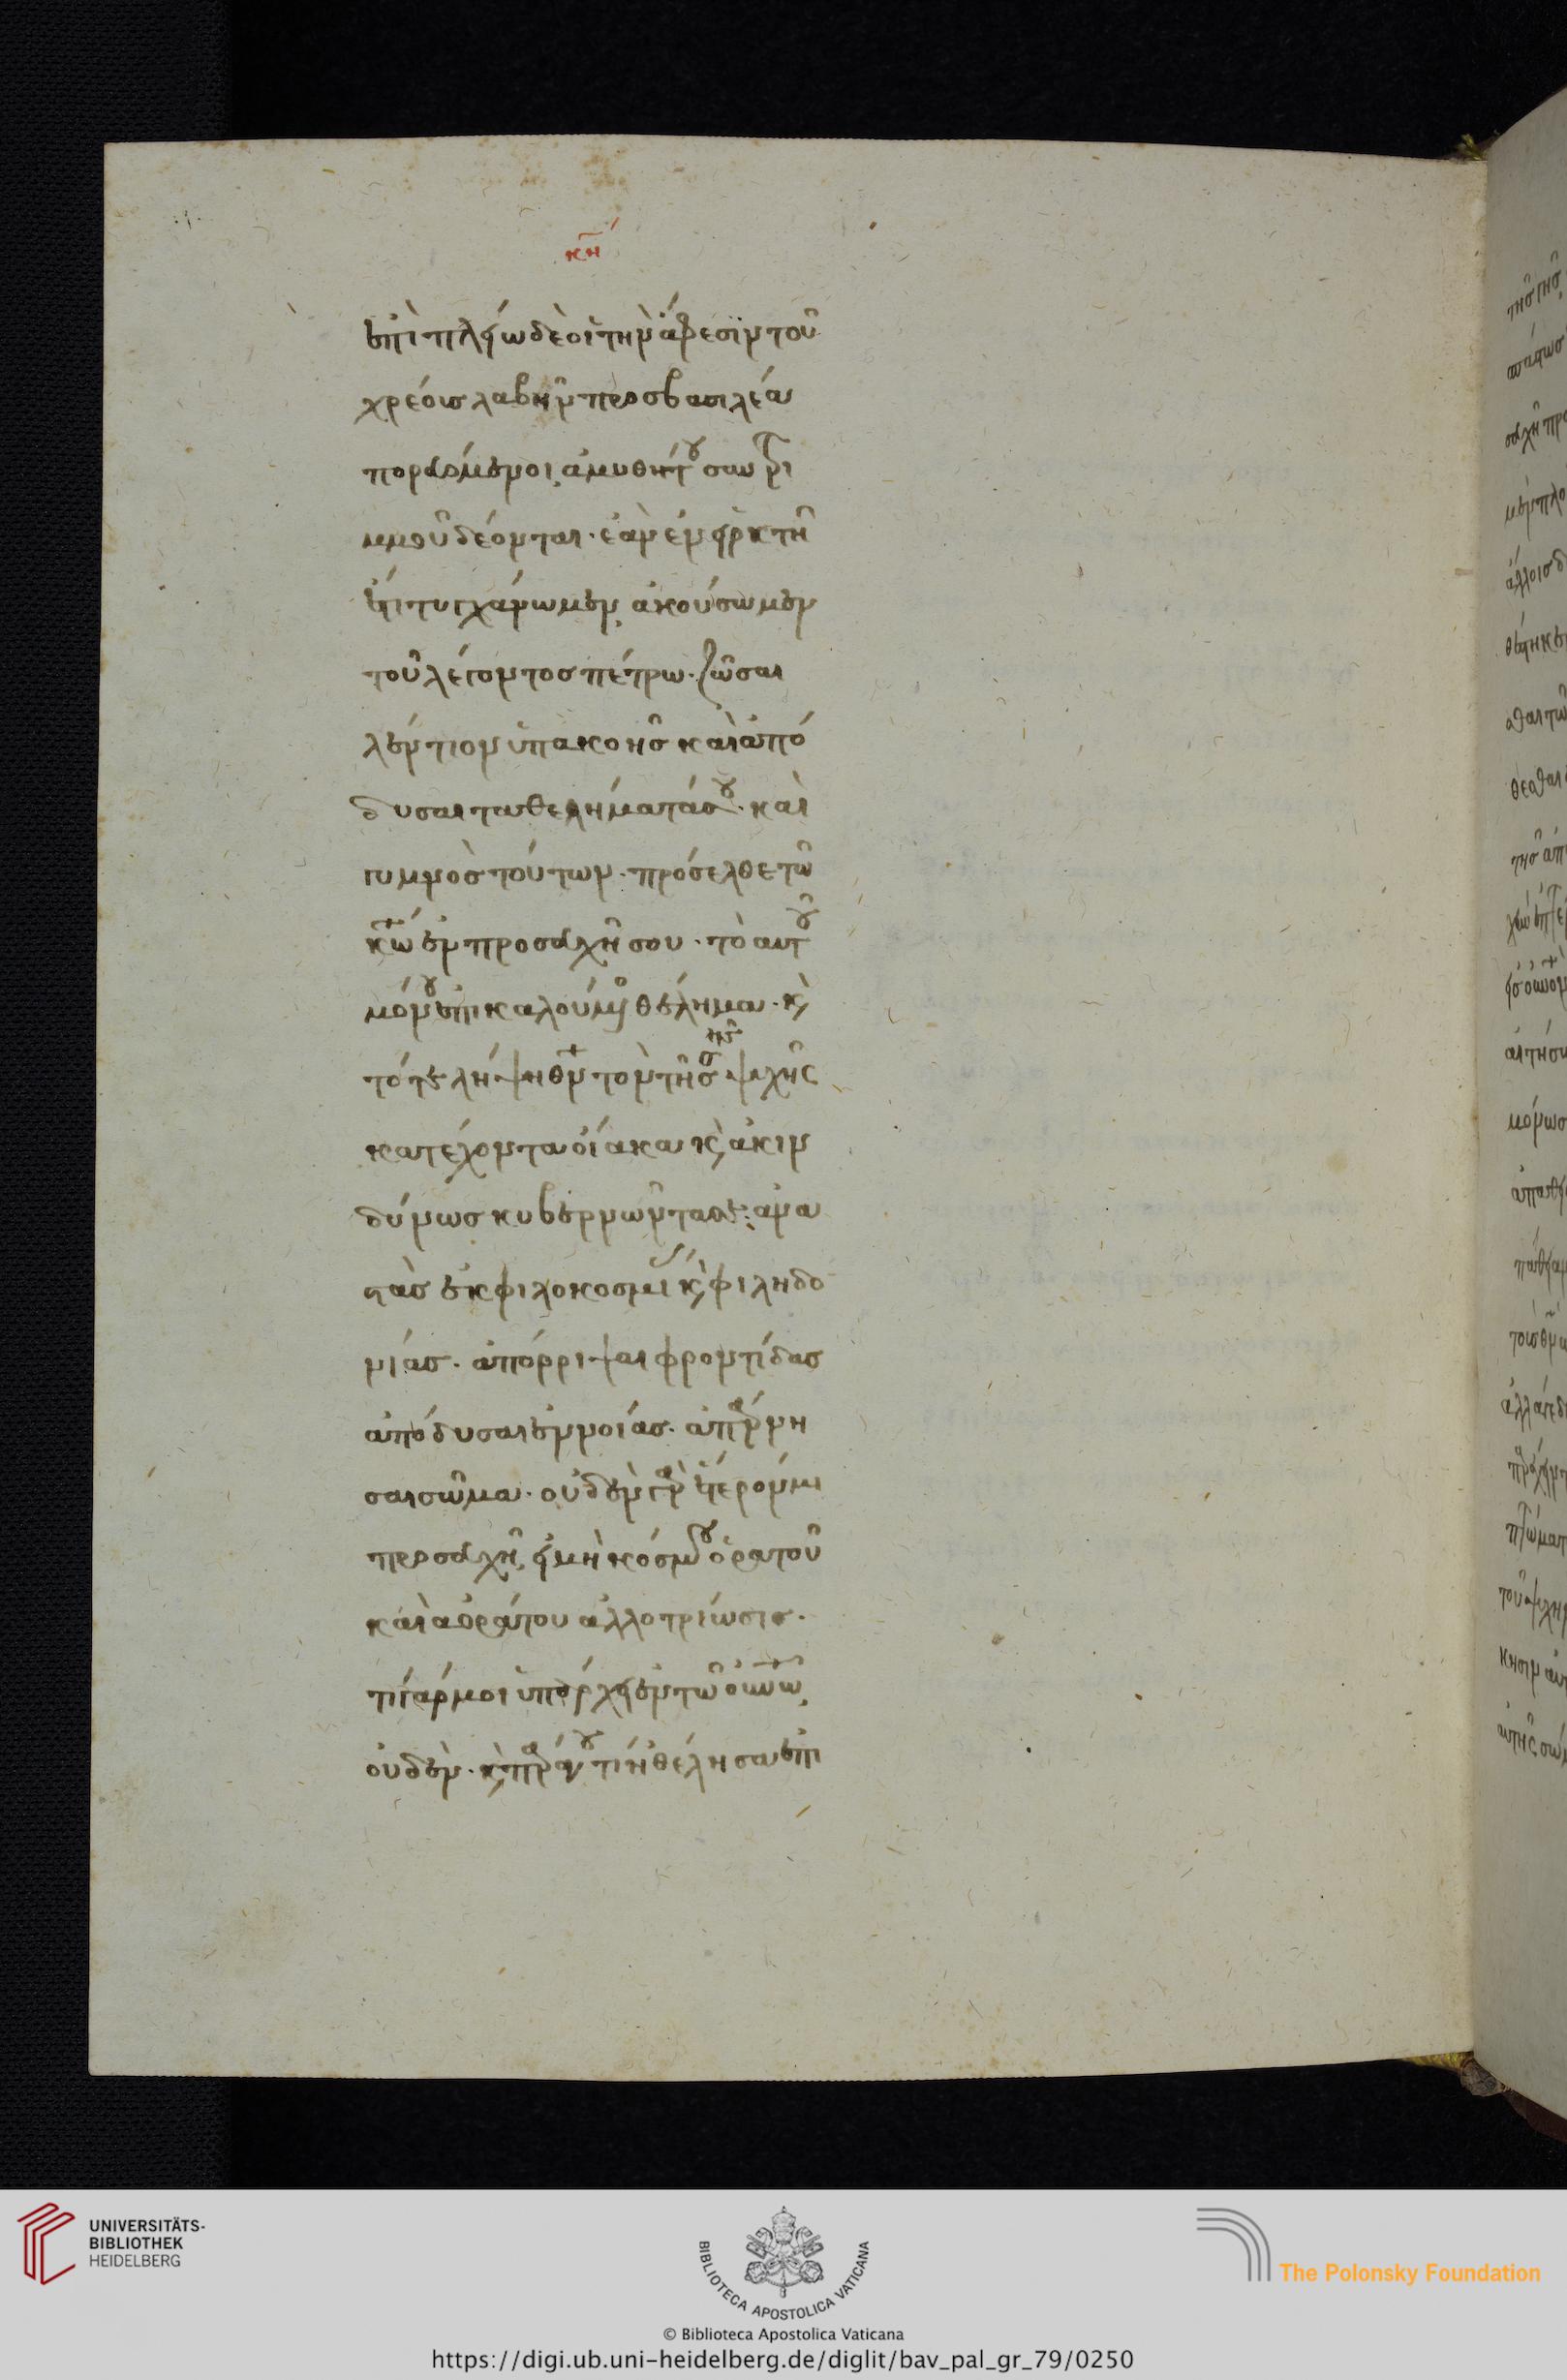 κη
ἐπὶ πλείω δὲ οἱ τὴν ἄφεσιν τοῦ
χρέους λαβεῖν προσβασιλέα
πορευόμενοι, ἀμυθήτου συντρι
μμοῦ δέονται· ἐὰν ἐν εἱρκτῆ
ἔτι τυγχάνωμεν, ἀκούσωμεν
τοῦ λέγοντος πέτρω· ζῶσαι
λέντιον ὑπακοῆς καὶ ἀπό
δυσαι τὰ θελήματά σου· καὶ
γυμνὸς τούτων· πρόσελθε τῶ
κω ἐν προσευχῆ σου· τὸ αὐτοῦ
μόνου ἐπικαλούμενος θέλημα· κ
τότε λήψη θν τὸν τῆς σῆς ψυχῆς
κατέχοντα οἴακα κ ἀκιν
δύνως κυβερνῶντα σε: ἀνα
στὰς ἐκ φιλοκοσμίας κ φιληδο
νίας· ἀπόρριψαι φροντίδας
ἀπόδυσαι ἐννοίας· ἀπάρνη
σαι σῶμα· οὐδὲν γὰρ ἕτερόν ἐστι
προσευχῆ, εἰ μὴ κόσμου ὁρατοῦ
καὶ ἀοράτου ἀλλοτρίωσις·
τί γάρ μοι ὑπάρχει ἐν τῶ ουνω,
οὐδέν· κ παρὰ σοῦ τί ἠθέλησα ἐπὶ
UNIVERSITÄTS-
BIBLIOTHEK
HEIDELBERG
BIBLIOTECA APOSTOLICA VATICANA
© Biblioteca Apostolica Vaticana
The Polonsky Foundation
https://digi.ub.uni-heidelberg.de/diglit/bav_pal_gr_79/0250